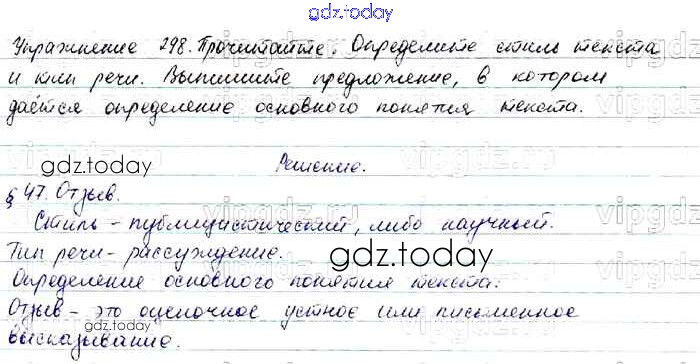 gdz.today
Упражнение 298. Прочитайте. Определите стиль текста
и тип речи. Выпишите предложение, в котором
даётся определение основного понятия текста.
gdz.today
Решение.
§ 47. Отзыв.
Стиль - публицистический, либо научный.
Тип речи - рассуждение.
gdz.today
Определение основного понятия текста:
Отзыв - это оценочное устное или письменное
gdz.today
высказывание.